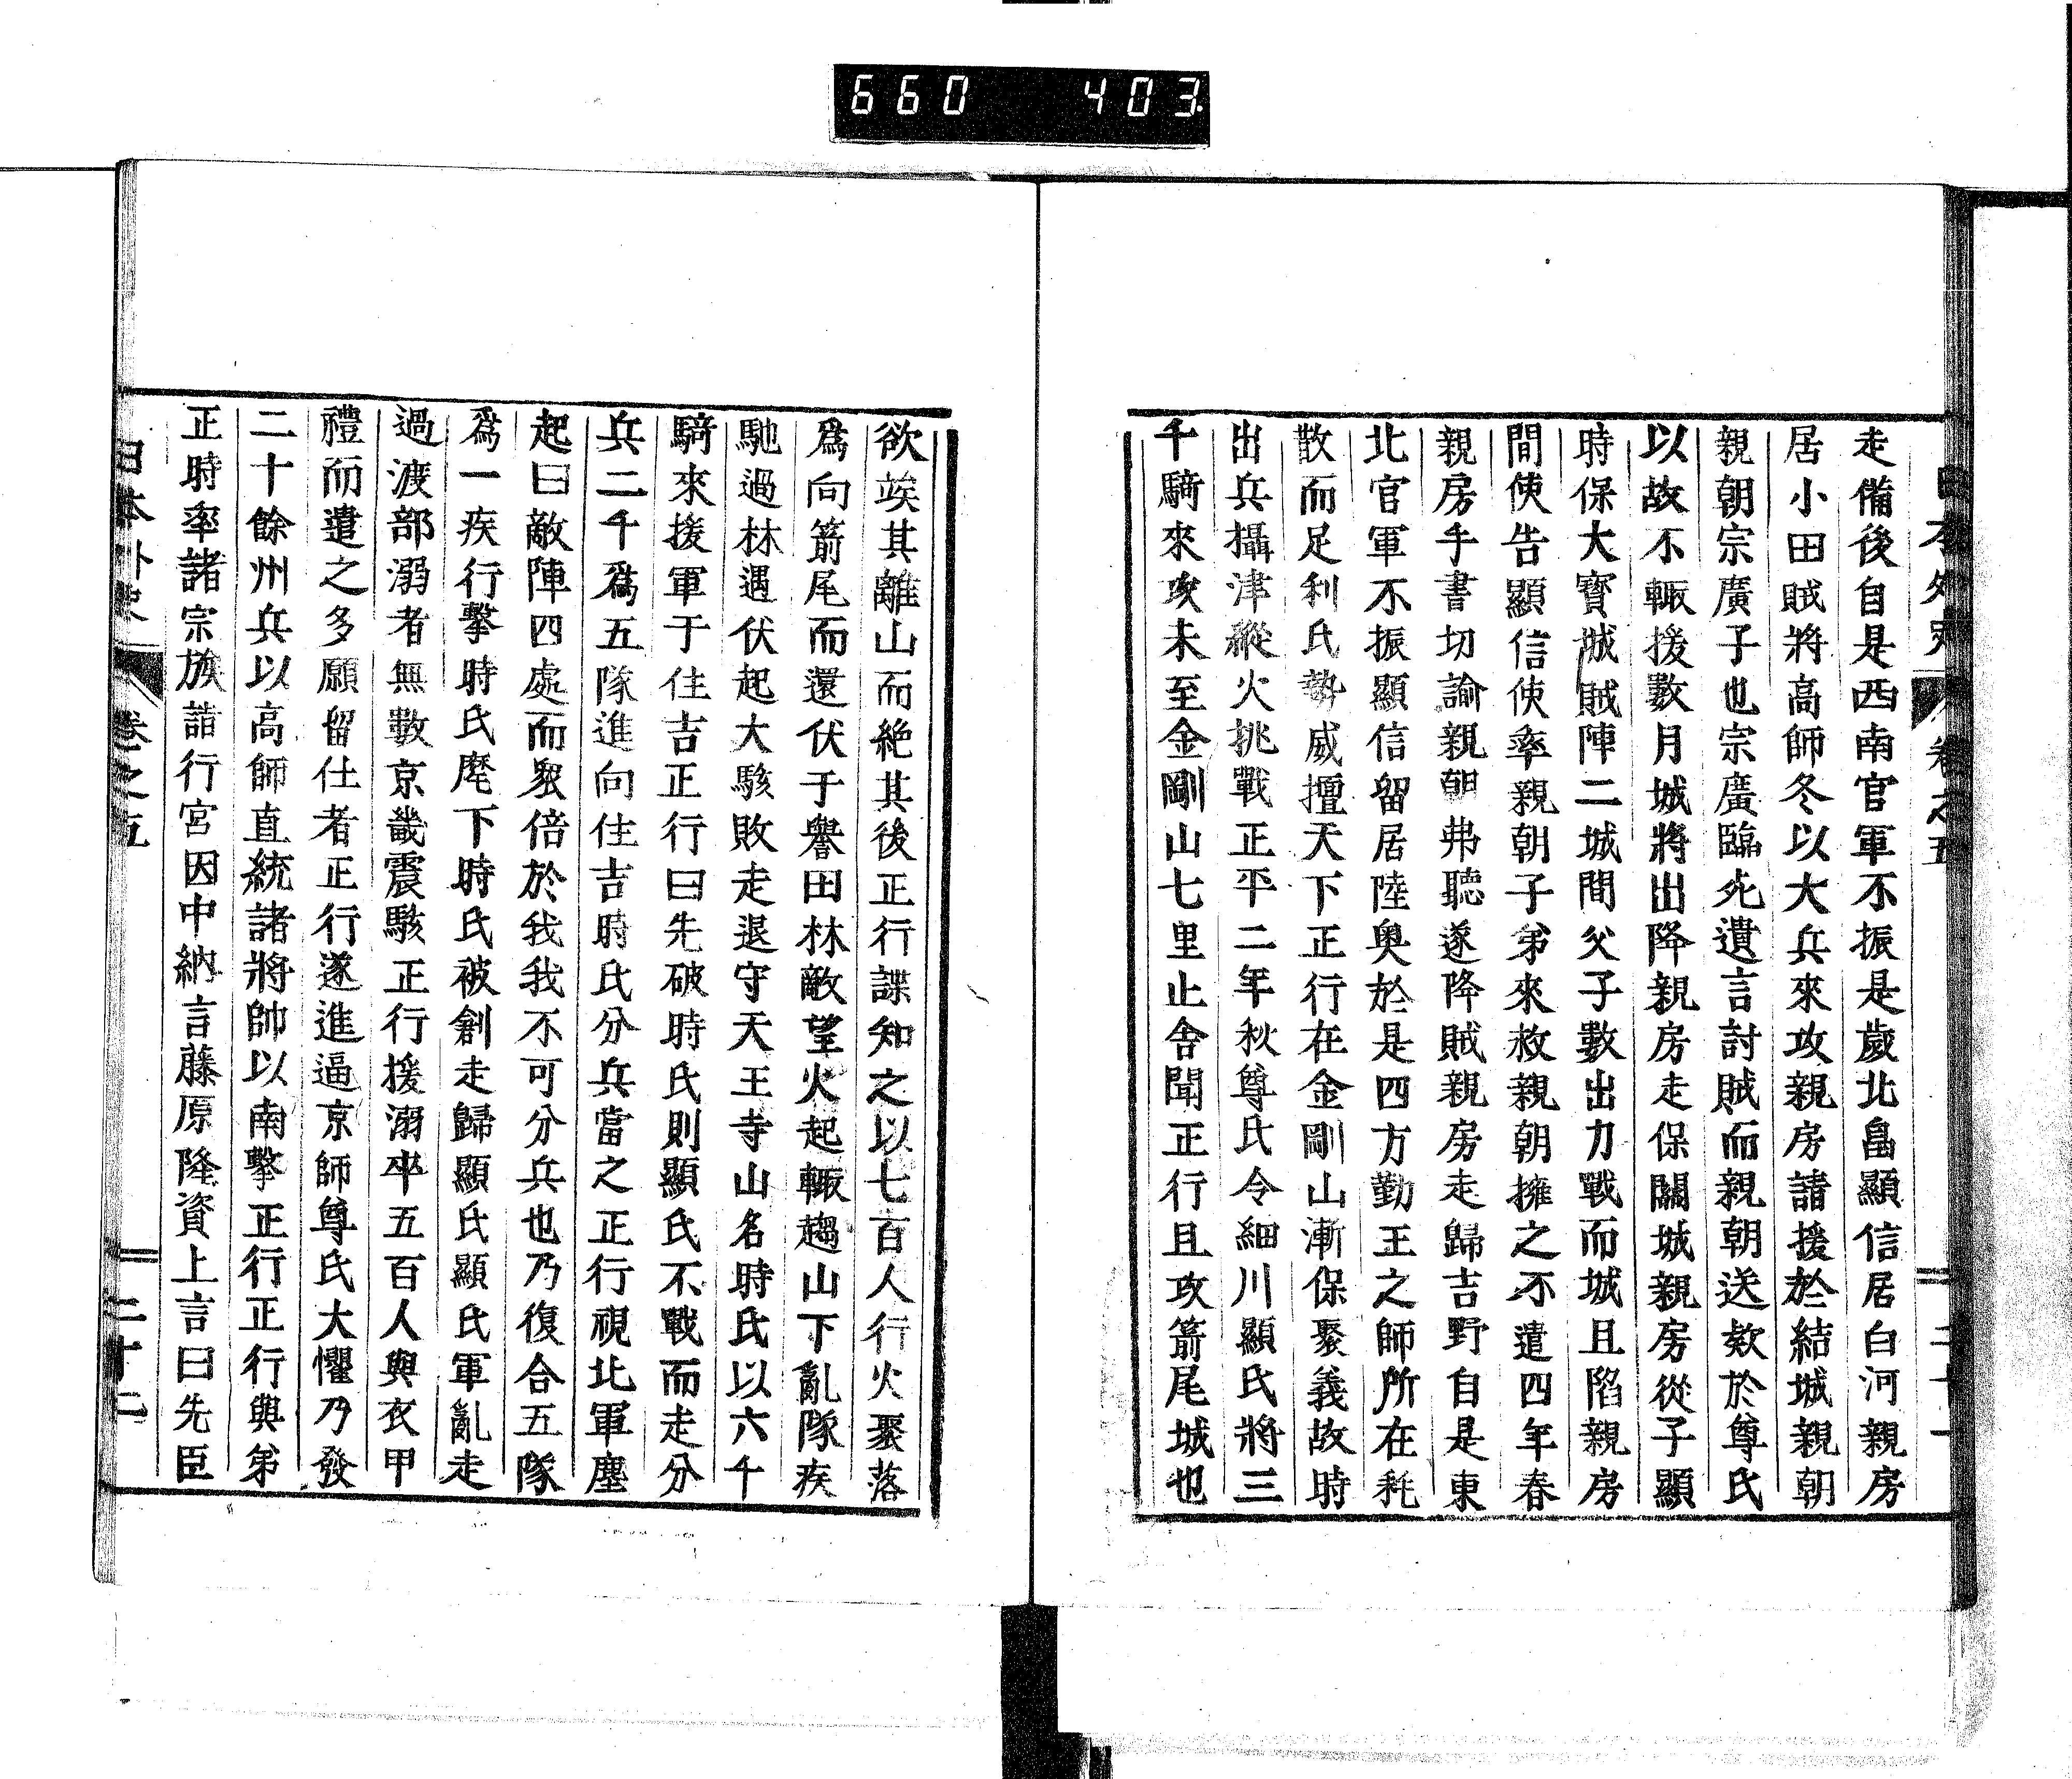 660 403
日本外史 卷之五 二十一
走備後自是西南官軍不振是歲北畠顯信居白河親房
居小田賊將高師冬以大兵來攻親房請援於結城親朝
親朝宗廣子也宗廣臨死遺言討賊而親朝送款於尊氏
以故不輙援數月城將出降親房走保關城親房從子顯
時保大寶城賊陣二城間父子數出力戰而城且陷親房
間使告顯信使率親朝子弟來救親朝擁之不遣四年春
親房手書切諭親朝弗聽遂降賊親房走歸吉野自是東
北官軍不振顯信留居陸奥於是四方勤王之師所在秏
散而足利氏勢威擅天下正行在金剛山漸保聚義故時
出兵攝津縱火挑戰正平二年秋尊氏令細川顯氏將三
千騎來攻未至金剛山七里止舍聞正行且攻箭尾城也
欲竢其離山而絶其後正行諜知之以七百人行火聚落
爲向箭尾而還伏于譽田林敵望火起輙趨山下亂隊疾
馳過林遇伏起大駭敗走退守天王寺山名時氏以六千
騎來援軍于住吉正行曰先破時氏則顯氏不戰而走分
兵二千爲五隊進向住吉時氏分兵當之正行視北軍塵
起曰敵陣四處而衆倍於我我不可分兵也乃復合五隊
爲一疾行擊時氏麾下時氏被創走歸顯氏顯氏軍亂走
過渡部溺者無數京畿震駭正行援溺卒五百人與衣甲
禮而遣之多願留仕者正行遂進逼京師尊氏大懼乃發
二十餘州兵以高師直統諸將帥以南擊正行正行與弟
正時率諸宗族詣行宮因中納言藤原隆資上言曰先臣
日本外史 卷之五 二十二